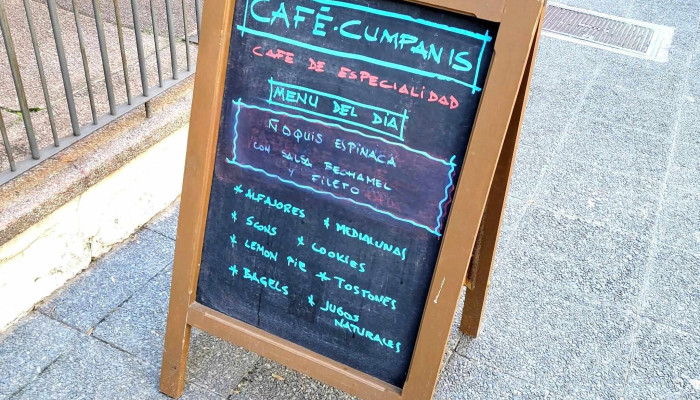 CAFÉ·CUMPANIS
CAFE DE ESPECIALIDAD
MENU DEL DIA
ÑOQUIS ESPINACA
CON SALSA BECHAMEL
Y FILETO
* ALFAJORES * MEDIALUNAS
* SCONS * COOKIES
* LEMON PIE * TOSTONES
* BAGELS * JUGOS
NATURALES